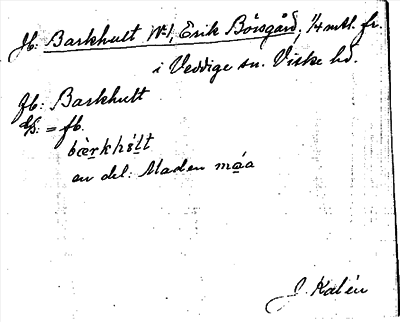 Jb: Barkhult No 1, Erik Börsgård, 1/4 mtl. fr.
i Veddige sn. Viske hd.
Jb: Barkhult
= fb.
bæ̀rkhɛ́lt
en del: Maden ma̱a
J. Kalén